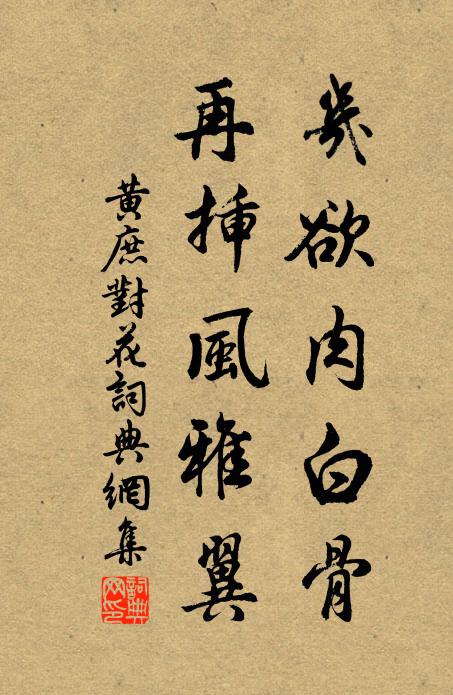 幾欲肉白骨
再揷風雅翼
黃庶對花詞典網集
詞典網印